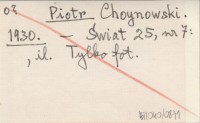 03 Piotr Choynowski.
1930. — Świat 25, nr 7:
, il. Tylko fot.